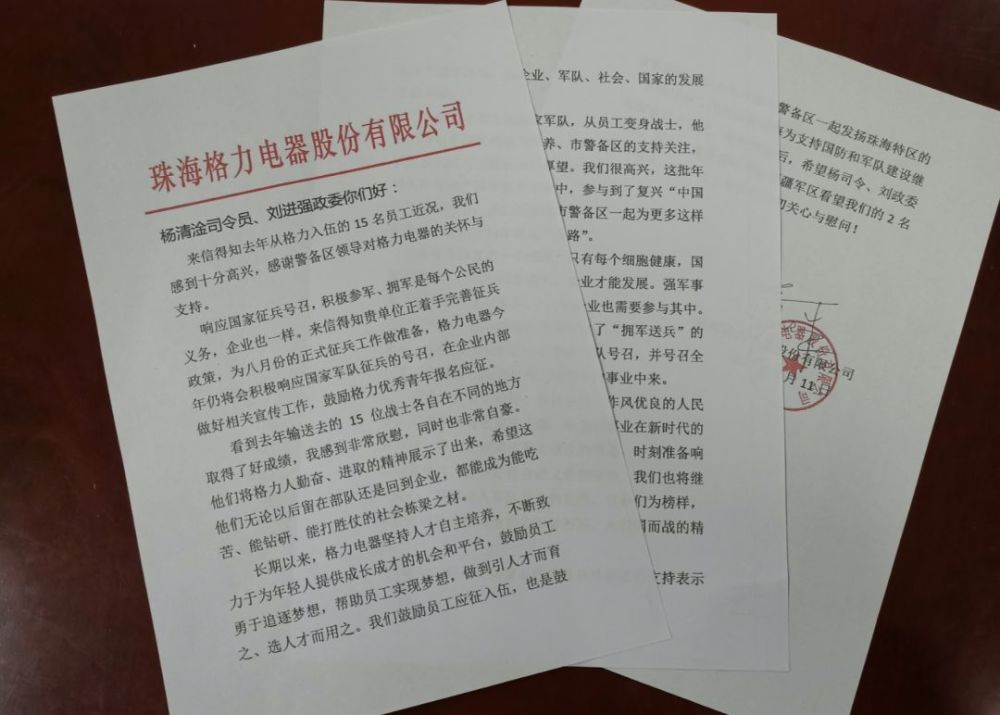 珠海格力电器股份有限公司
杨清淦司令员、刘进强政委你们好：
来信得知去年从格力入伍的15名员工近况，我们
感到十分高兴，感谢警备区领导对格力电器的关怀与
支持。
响应国家征兵号召，积极参军、拥军是每个公民的
义务，企业也一样。来信得知贵单位正着手完善征兵
政策，为八月份的正式征兵工作做准备，格力电器今
年仍将会积极响应国家军队征兵的号召，在企业内部
做好相关宣传工作，鼓励格力优秀青年报名应征。
看到去年输送去的 15 位战士各自在不同的地方
取得了好成绩，我感到非常欣慰，同时也非常自豪。
他们将格力人勤奋、进取的精神展示了出来，希望这
他们无论以后留在部队还是回到企业，都能成为能吃
苦、能钻研、能打胜仗的社会栋梁之材。
长期以来，格力电器坚持人才自主培养，不断致
力于为年轻人提供成长成才的机会和平台，鼓励员工
勇于追逐梦想，帮助员工实现梦想，做到引人才而育
之、选人才而用之。我们鼓励员工应征入伍，也是鼓
企业、军队、社会、国家的发展
家军队，从员工变身战士，他
养、市警备区的支持关注，
厚望。我们很高兴，这批年
中，参与到了复兴“中国
市警备区一起为更多这样
路”。
只有每个细胞健康，国
企业才能发展。强军事
业也需要参与其中。
了“拥军送兵”的
队号召，并号召全
事业中来。
作风优良的人民
事业在新时代的
时刻准备响
我们也将继
们为榜样，
国而战的精
支持表示
警备区一起发扬珠海特区的
为支持国防和军队建设继
后，希望杨司令、刘政委
疆军区看望我们的2名
切关心与慰问！
股份有限公司
月 11 日